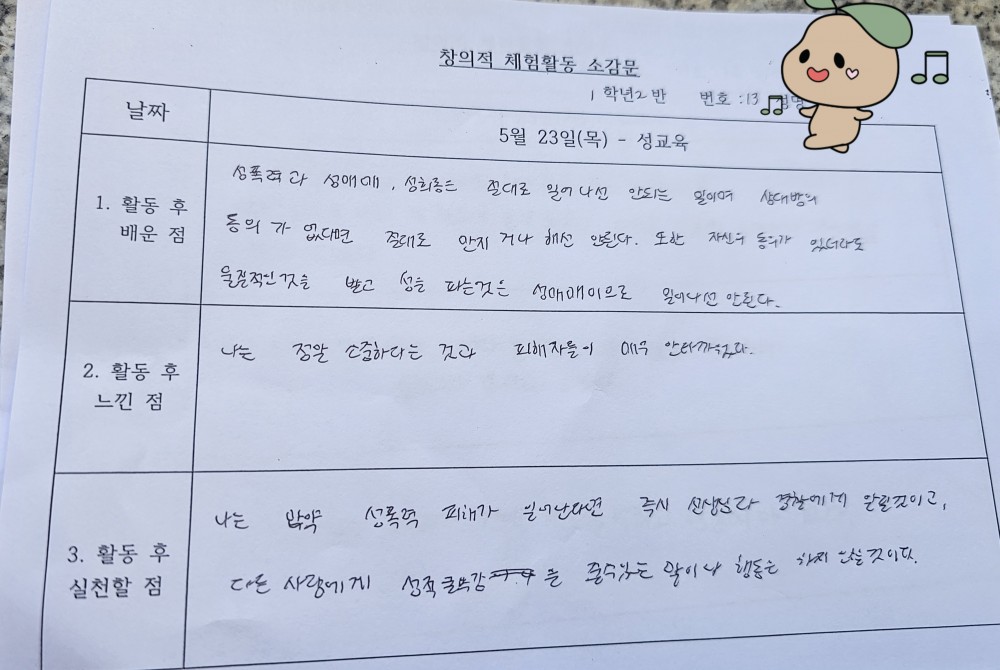 창의적 체험활동 소감문
1 학년 2 반 번호 : 13
날짜
5월 23일(목) - 성교육
1. 활동 후
배운 점
성폭력과 성매매, 성희롱은 절대로 일어나선 안되는 일이며 상대방의
동의가 없다면 절대로 만지거나 해선 안된다. 또한 자신의 동의가 있더라도
물질적인 것을 받고 성을 파는것은 성매매이므로 일어나선 안된다.
2. 활동 후
느낀 점
나는 정말 소중하다는 것과 피해자들이 매우 안타까웠다.
3. 활동 후
실천할 점
나는 만약 성폭력 피해가 일어난다면 즉시 선생님과 경찰에게 알릴것이고,
다른 사람에게 성적 을 줄수있는 말이나 행동은 하지 않을것이다.